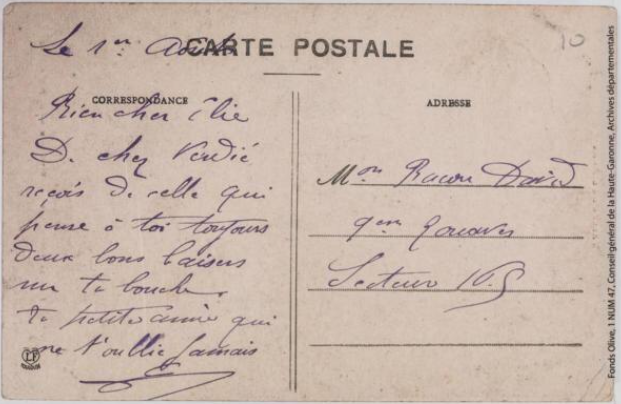 Le 1er Août
CARTE POSTALE
10
CORRESPONDANCE
Bien cher Élie
D. chez Verdié
reçois de celle qui
pense à toi toujours
deux bons baisers
sur ta bouche.
ta petite amie qui
ne t'oublie jamais
LF
ADRESSE
Mon David
9em Zouaves
Secteur
Fonds Olive, 1 NUM 47, Conseil général de la Haute-Garonne, Archives départementales